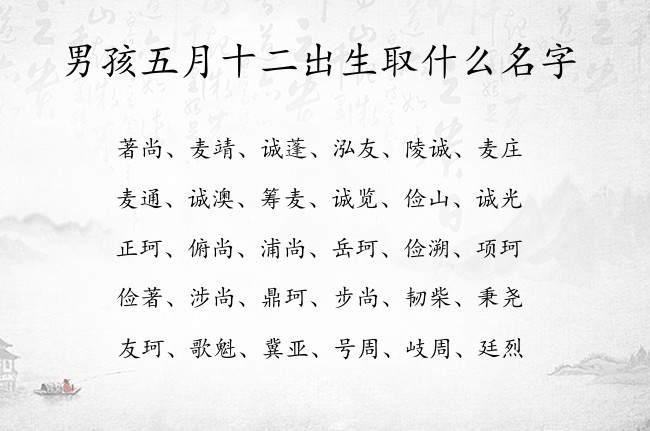 男孩五月十二出生取什么名字
著尚、麦靖、诚蓬、泓友、陵诚、麦庄
麦通、诚澳、筹麦、诚览、俭山、诚光
正珂、俯尚、浦尚、岳珂、俭溯、项珂
俭著、涉尚、鼎珂、步尚、韧柴、秉尧
友珂、歌魁、冀亚、号周、岐周、廷烈